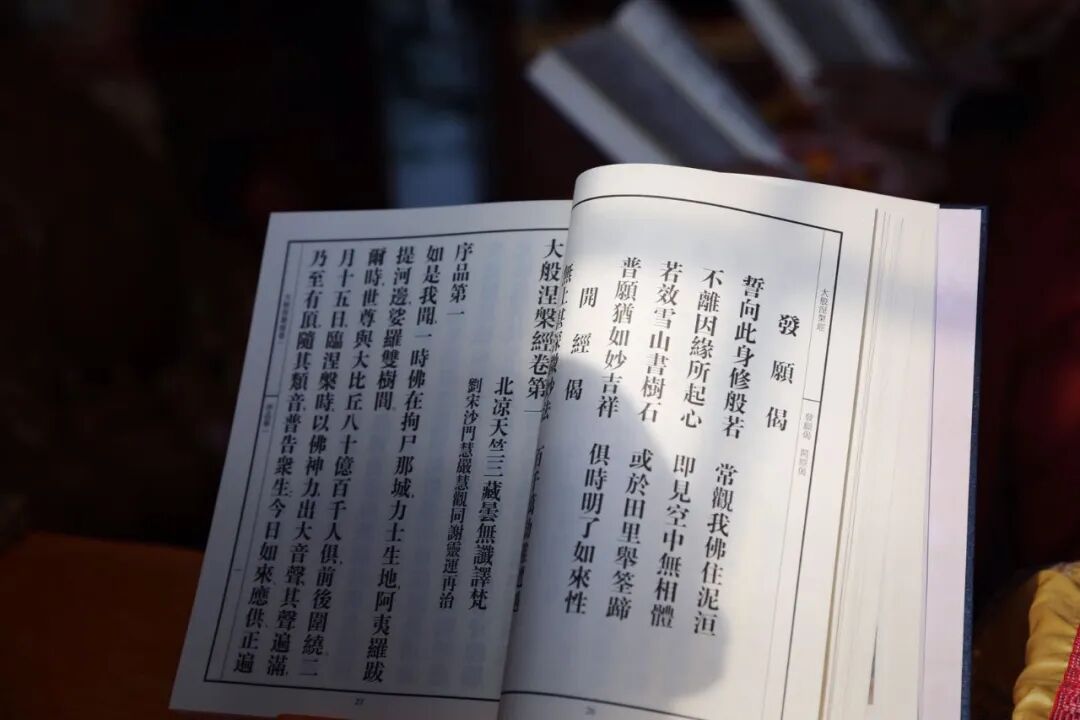 大般涅槃經
發願偈 開經偈
發願偈
誓向此身修般若 常觀我佛住泥洹
不離因緣所起心 即見空中無相體
若效雪山書樹石 或於田里舉筌蹄
普願猶如妙吉祥 俱時明了如來性
開經偈
26
大般涅槃經卷第一
北凉天竺三藏曇無讖譯梵
劉宋沙門慧嚴慧觀同謝靈運再治
序品第一
如是我聞一時佛在拘尸那城力士生地阿夷羅跋
提河邊娑羅雙樹間
爾時世尊與大比丘八十億百千人俱前後圍繞二
月十五日臨涅槃時以佛神力出大音聲其聲遍滿
乃至有頂隨其類音普告衆生今日如來應供正遍
27